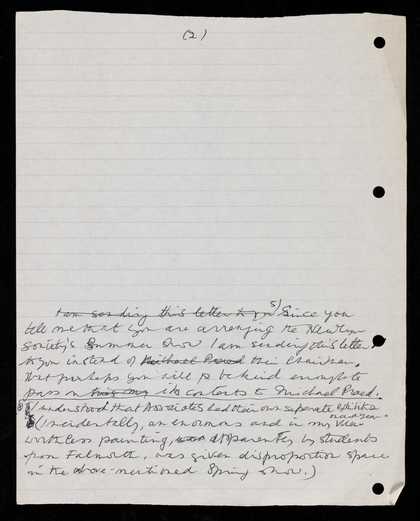 (2)
I am sending this letter to you 5) Since you
tell me that you are arranging the Newlyn
Society's Summer Show I am sending this letter
to you instead of Michael Praed their Chairman.
But perhaps you will be kind enough to
pass on its contents to Michael Praed.
I understood that Associates had their own separate exhibition
(Incidentally, an enormous and in my view
worthless painting, was apparently by students
from Falmouth, was given disproportion space
in the above-mentioned Spring Show.)